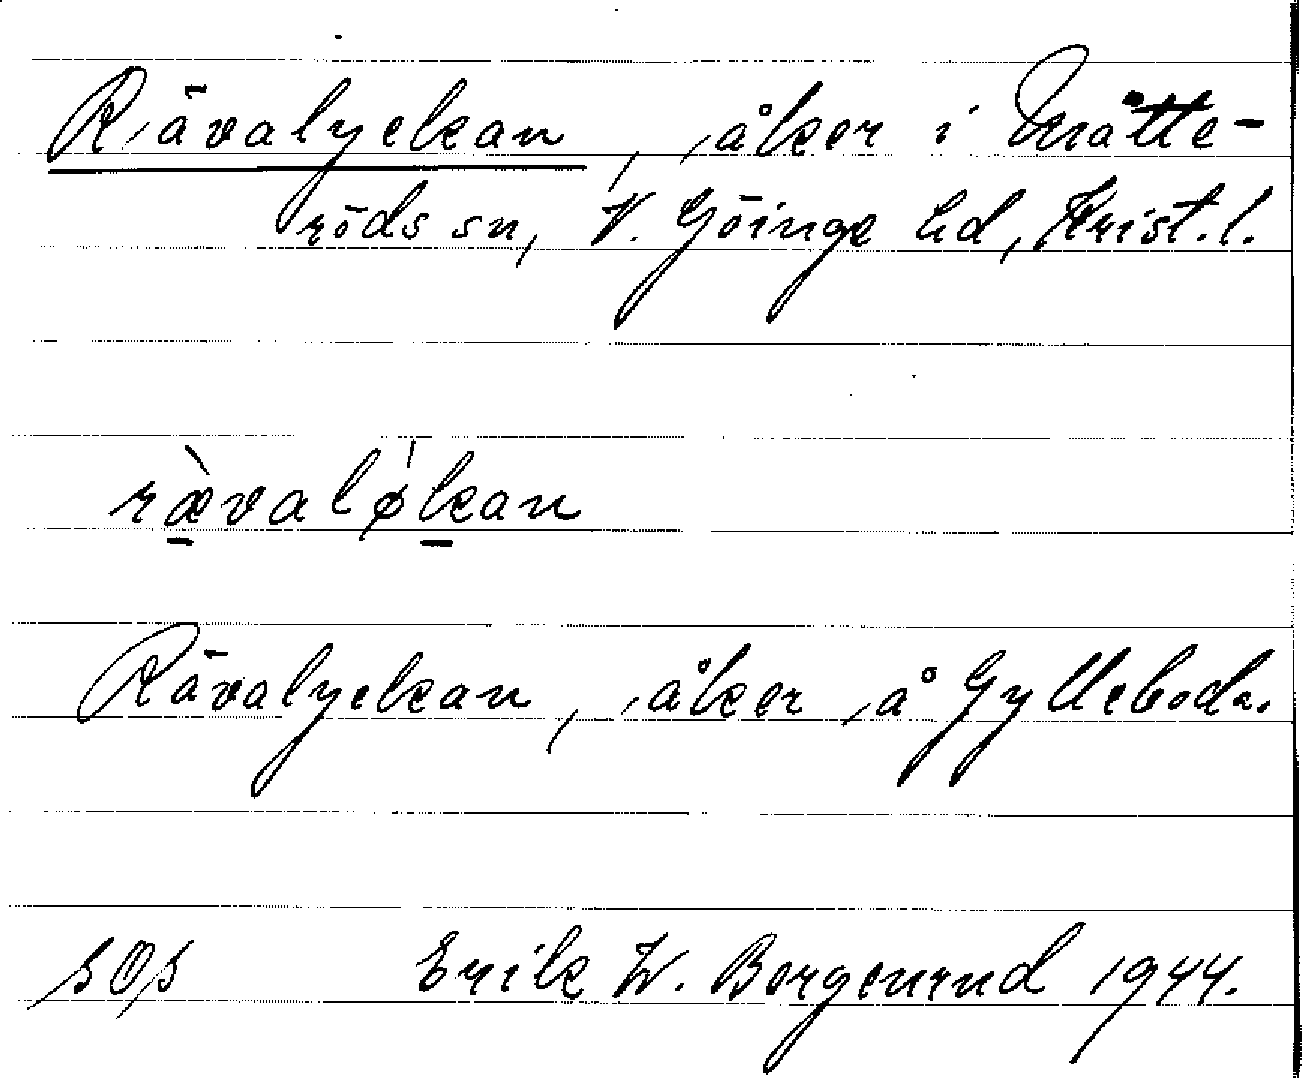 Rävalyckan, åker i Mätte-
röds sn, V. Göinge hd, Krist. l.
ræ̀valø̍kan
Rävalyckan, åker å Gylleboda.
Erik W. Borgenrud 1944.